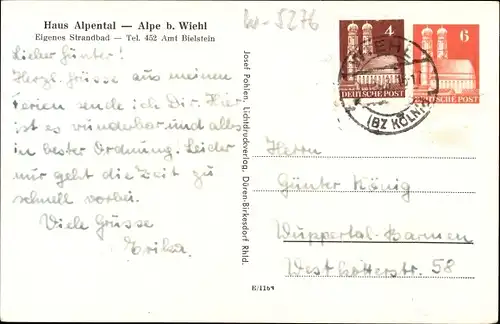 Haus Alpental — Alpe b. Wiehl
Eigenes Strandbad — Tel. 452 Amt Bielstein
Lieber Günter!
Herzl. Grüsse aus meinen
Ferien sende ich Dir. Hier
ist es wunderbar und alles
in bester Ordnung. Leider
nur geht die Zeit zu
schnell vorbei.
Viele Grüsse
Erika.
Josef Pohlen, Lichtdruckverlag, Düren-Birkesdorf Rhld.
E/1164
bw-5276
4
DEUTSCHE POST
6
DEUTSCHE POST
WIEHL
(BZ KÖLN)
Herrn
Günter König
Wuppertal-Barmen
Westkotterstr. 58